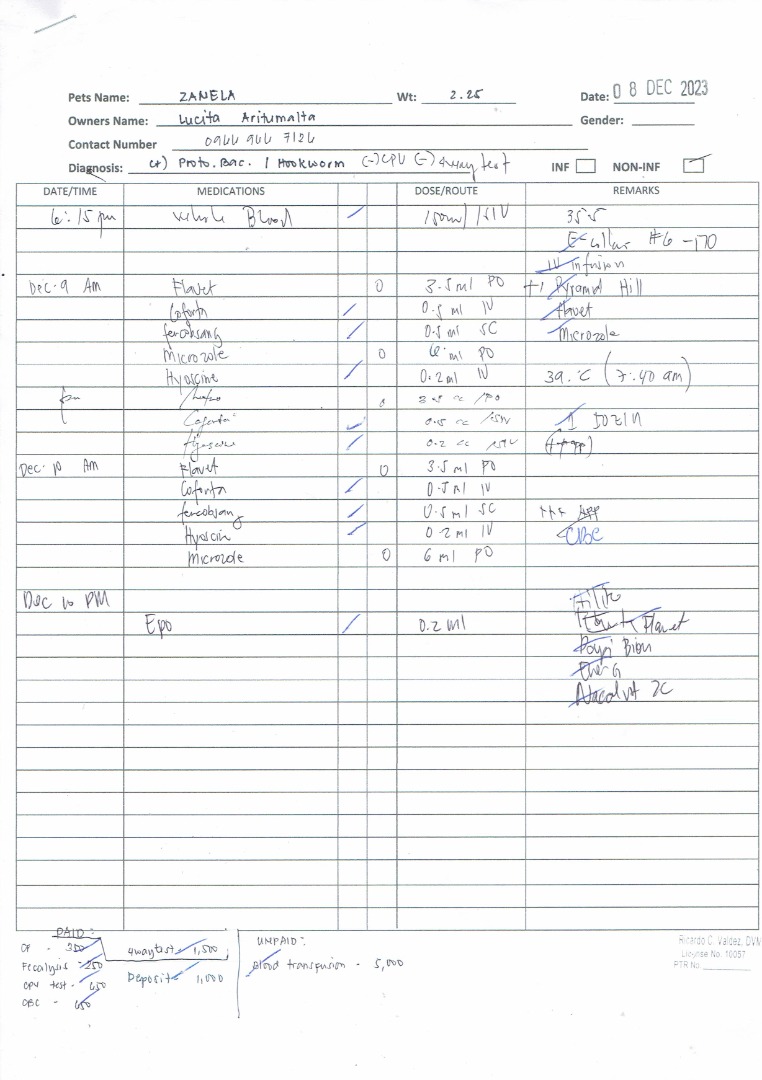 Pets Name: ZANELA Wt: 2.25 Date: 08 DEC 2023
Owners Name: Lucita Aritumalta Gender:
Contact Number 0966 966 7126
Diagnosis: (+) Proto. Bac. / Hookworm (-) CPV (-) 4way test INF NON-INF
DATE/TIME MEDICATIONS DOSE/ROUTE REMARKS
6:15 pm Whole Blood 150ml / SIV 35.5
E-collar #6 - 170
IV infusion
Dec. 9 Am Flavet 0 3.5 ml PO +1 Pyramid Hill
Coforta 0.5 ml IV Flavet
fercobsang 0.5 ml SC Microzole
Microzole 0 6 ml PO
Hyoscine 0.2 ml IV 39. °C (7:40 am)
pm 0 3.5 cc /PO
Coforta 0.5 cc /SIV 1
Hyoscine 0.2 cc /SIV
Dec. 10 Am Flavet 0 3.5 ml PO
Coforta 0.5 ml IV
fercobsang 0.5 ml SC +++ App
Hyoscin 0.2 ml IV CBC
Microzole 0 6 ml PO
Dec 10 PM
Epo 0.2 ml Flavet
PAID: UNPAID:
CF - 350 4way test - 1,500 Blood transfusion - 5,000
Fecalysis - 250 Deposit - 1,000
CPV test - 650
CBC - 650
Ricardo C. Valdez, DVM
License No. 10057
PTR No.